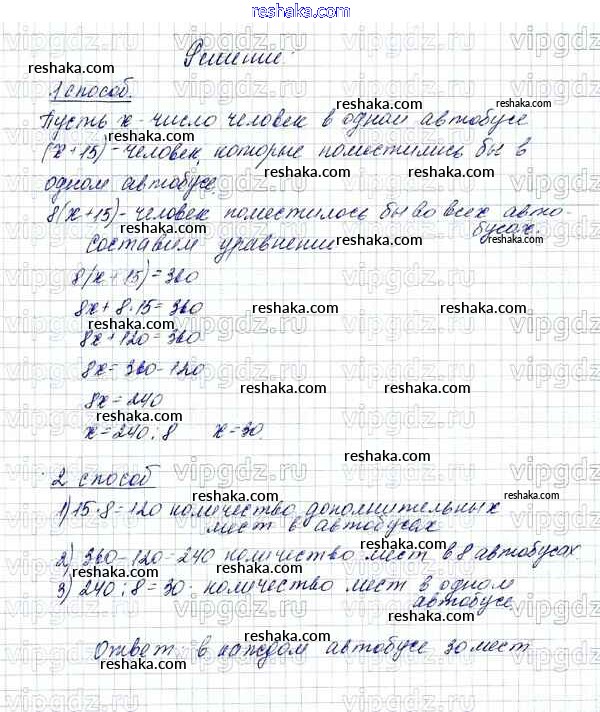 reshaka.com
Решение:
1 способ.
Пусть x - число человек в одном автобусе
(x+15) - человек, которые поместились бы в
одном автобусе.
8(x+15) - человек поместилось бы во всех авто-
бусах.
составим уравнение
8(x+15)=360
8x+8·15=360
8x+120=360
8x=360-120
8x=240
x=240:8 x=30.
2 способ
1) 15·8=120 количество дополнительных
мест в автобусах
2) 360-120=240 количество мест в 8 автобусах
3) 240:8=30. количество мест в одном
автобусе.
Ответ: в каждом автобусе 30 мест